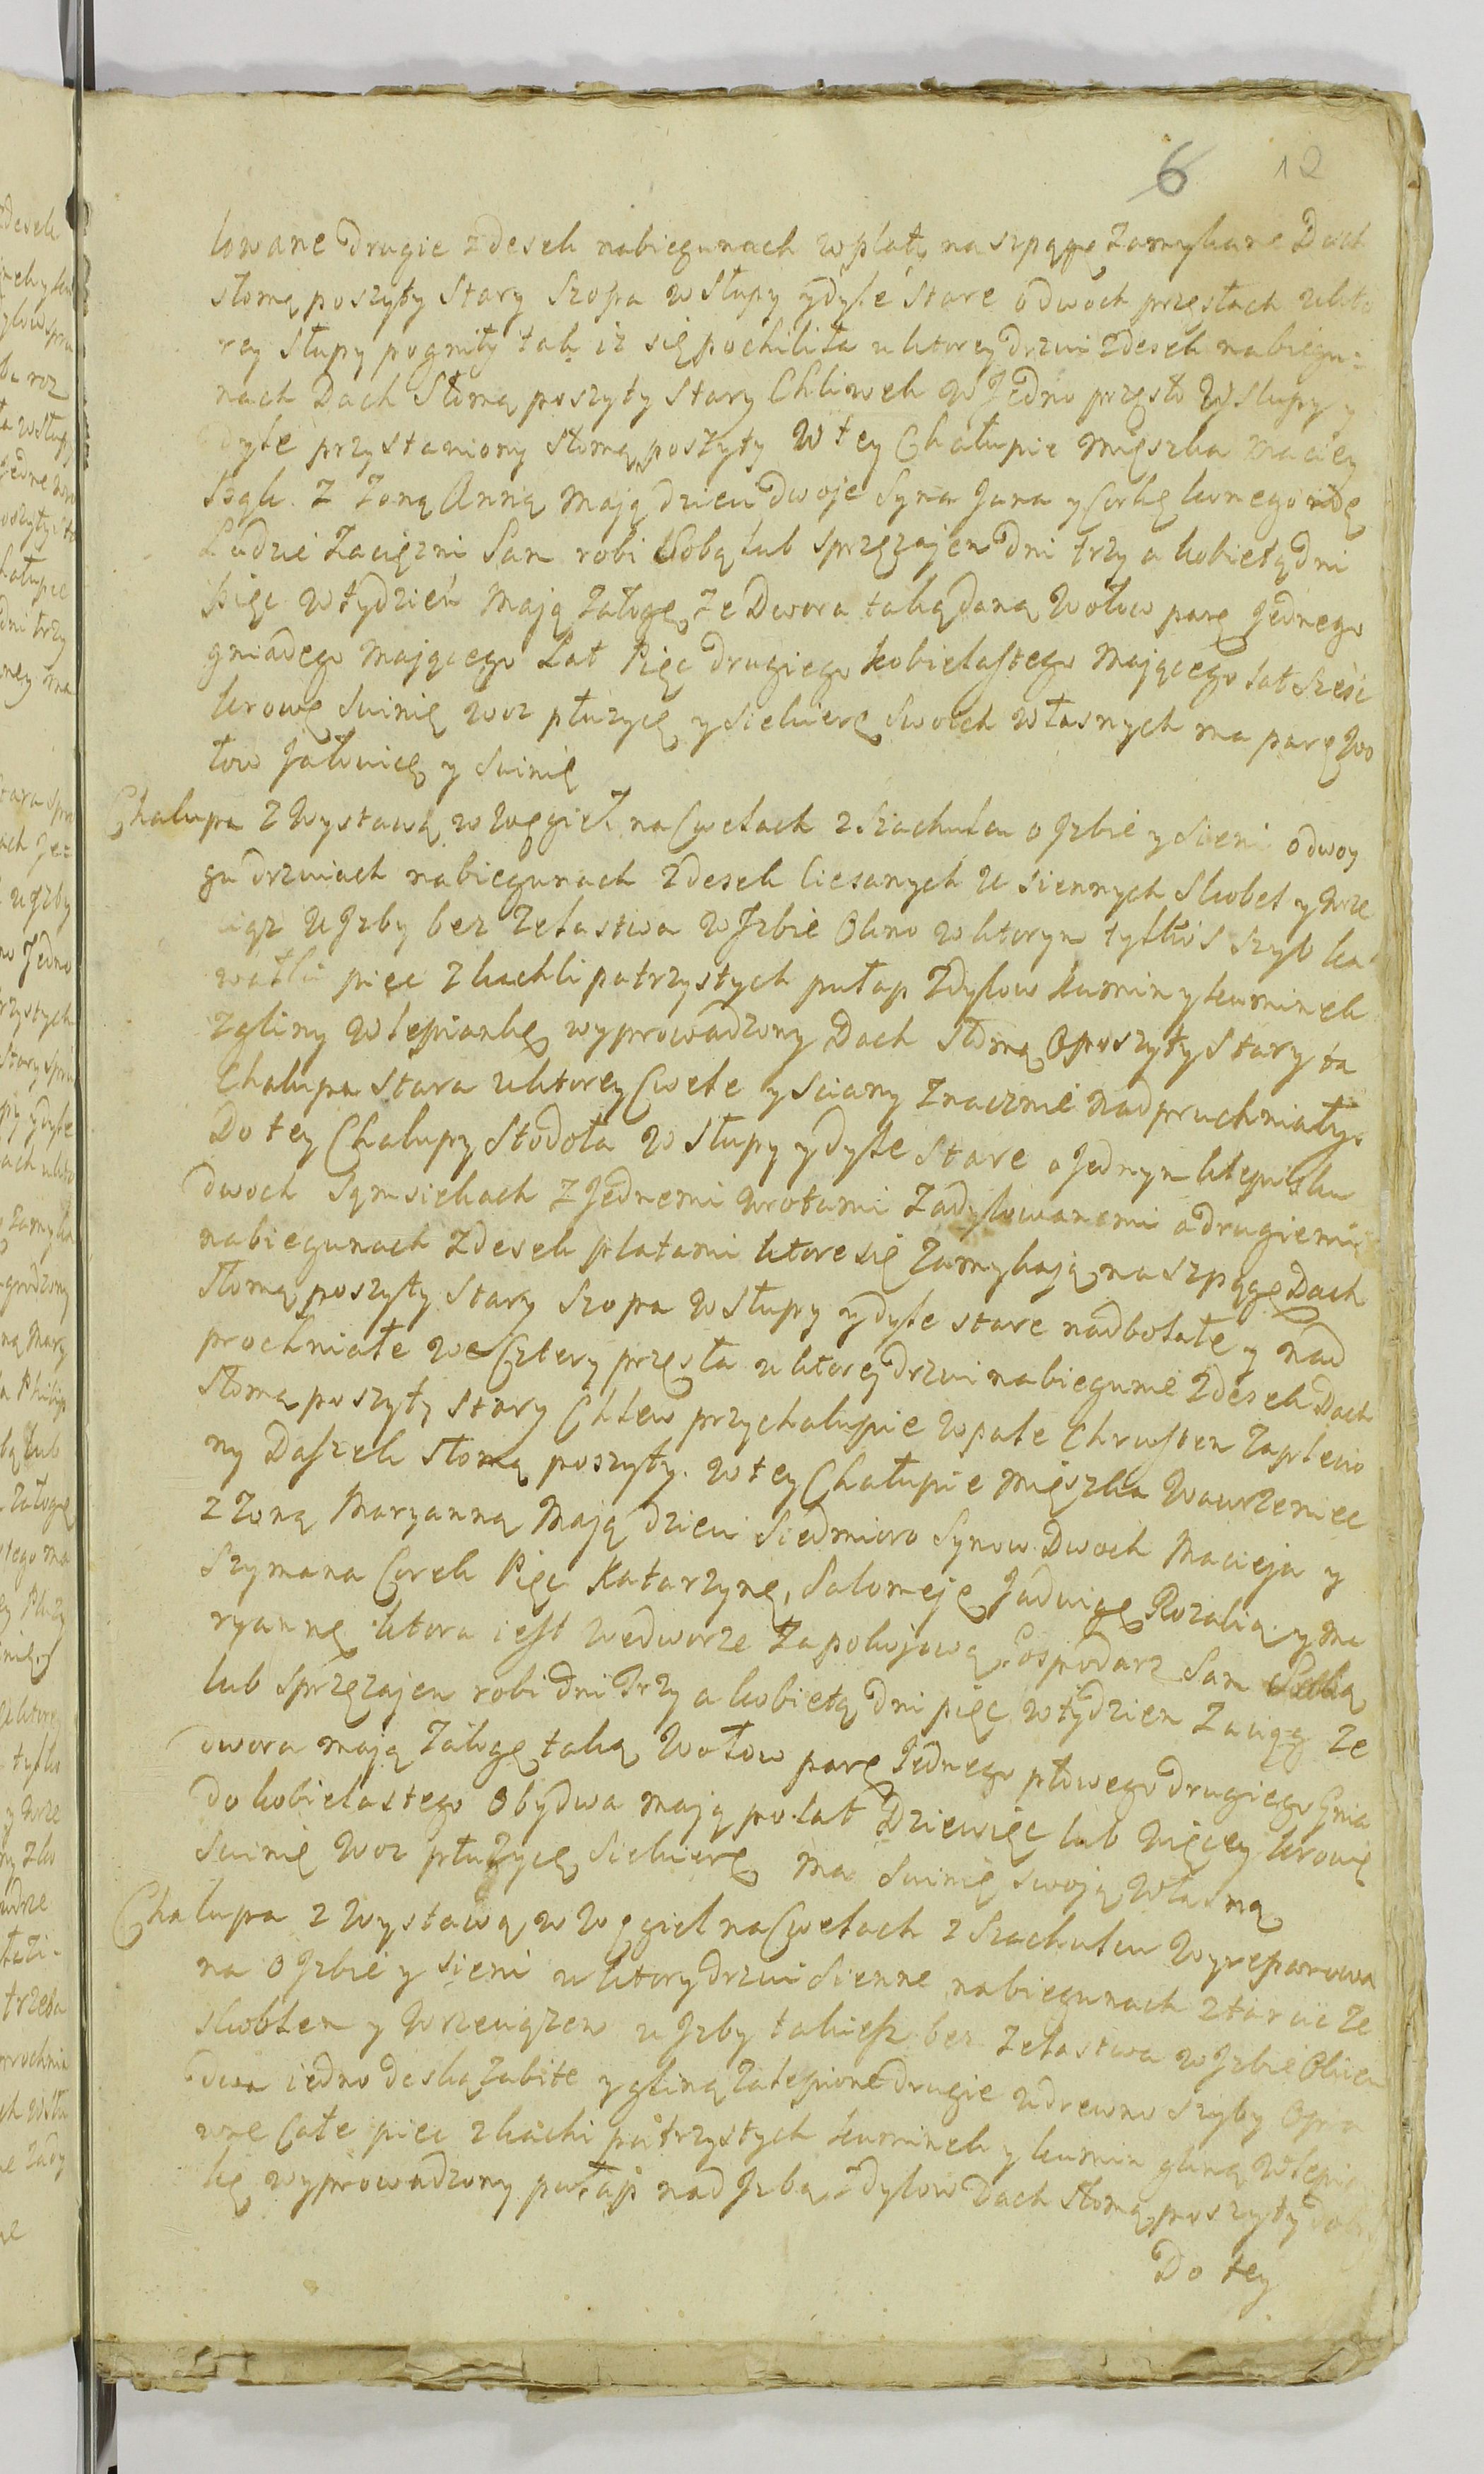 6 12
lowane drugie z desek nabiegunach w płatę na szpągę zamykane Dach
słomą poszyty stary Szopa w Słupy y dyle stare o dwoch przęsłach u kto
rey Słupy pogniły tak iz się pochiliła u ktorey drzwi z desek nabiegu=
nach Dach Słomą poszyty stary Chliwek w Jedno przęsło W Slupy y
dyle przystawiony słomą poszyty W tey Chałupie mięszka Maciey
z Zoną Anną mają dzieci dwoje Syna Jana y Corkę
Ludzie Zaciężni Sam robi Sobą lub sprzężajem dni trzy a kobietą dni
pięc w tydzień Mają Załogę ze Dwora taką daną Wołow parę Jednego
gniadego Mającego Lat Pięc drugiego kobielastego Mającego lat sześc
krowę Swinię woz płużycę y siekierę Swoich własnych ma parę Wo
łow Jałowicę y Swinię
Chalupa z Wystawą w Węgieł na Cwelach z Szachulcu o Izbie y Sieni o dwoy
gu drzwiach nabiegunach z desek Ciesanych u siennych Skobel y Wrze
ciąz u Izby bez Zelastwa w Izbie Okno w ktorym tylko 5 szyb ka
watki piec z kachli patrzystych pułap z dylow kumin y kuminek
z gliny w lepiankę wyprowadzony Dach słomą poszyty stary ta
Chalupa stara u ktorey Cwele y sciany znacznie nadpruchniały.
Do tey Chalupy Stodoła w Słupy y dyle stare o Jednym klepisku
dwoch Sąmsiekach z Jednemi wrotami Zadylowanemi a drugiemi
nabiegunach z desek płatami ktore się zamykają na szpągę Dach
słomą poszyty stary Szopa w Słupy y dyle stare nadbolałe y nad
prochniałe we Cztery przęsła u ktorey drzwi na biegunie z desek Dach
słomą poszyty stary Chlew przychalupie w pale Chrustem zaplecio
ny Daszek słomą poszyty. w tey Chałupie mięszka Wawrzeniec
z Zoną Maryanną Mają dzieci Siedmioro Synow Dwoch Macieja y
Szymana Corek Pięc Katarzynę, Salomeję Jadwigę Rozalią y Ma
ryannę ktora iest we dworze Za pokojową Gospodarz Sam Sobą
lub sprzęzajem robi dni Trzy a kobietą dni pięc w tydzien Zaciąg ze
dwora mają Załogę taką Wołow parę Jednego płowego drugiego Gnia
do kobielastego Obydwa mają po lat Dziewięc lub Więcey krowę
Swinię Woz płużycę Siekierę ma Swinię swoją własną
Chalupa z Wystawą w Węgieł na Cwelach z Szachulcu Wyreparowa
na o Izbie y sieni u ktory drzwi Sienne nabiegunach z tarcic ze
skoblem y Wrzeciązem u Izby takiesz bez Zelastwa w Izbie Okien
dwa iedno deską Zabite y gliną Zalepione drugie w drewno szyby Opra
wne Całe piec z kachli patrzystych kuminek y kumin gliną w lepia
kę wyprowadzony pułap nad Izbą z dylow Dach słomą poszyty dobry
Do tey